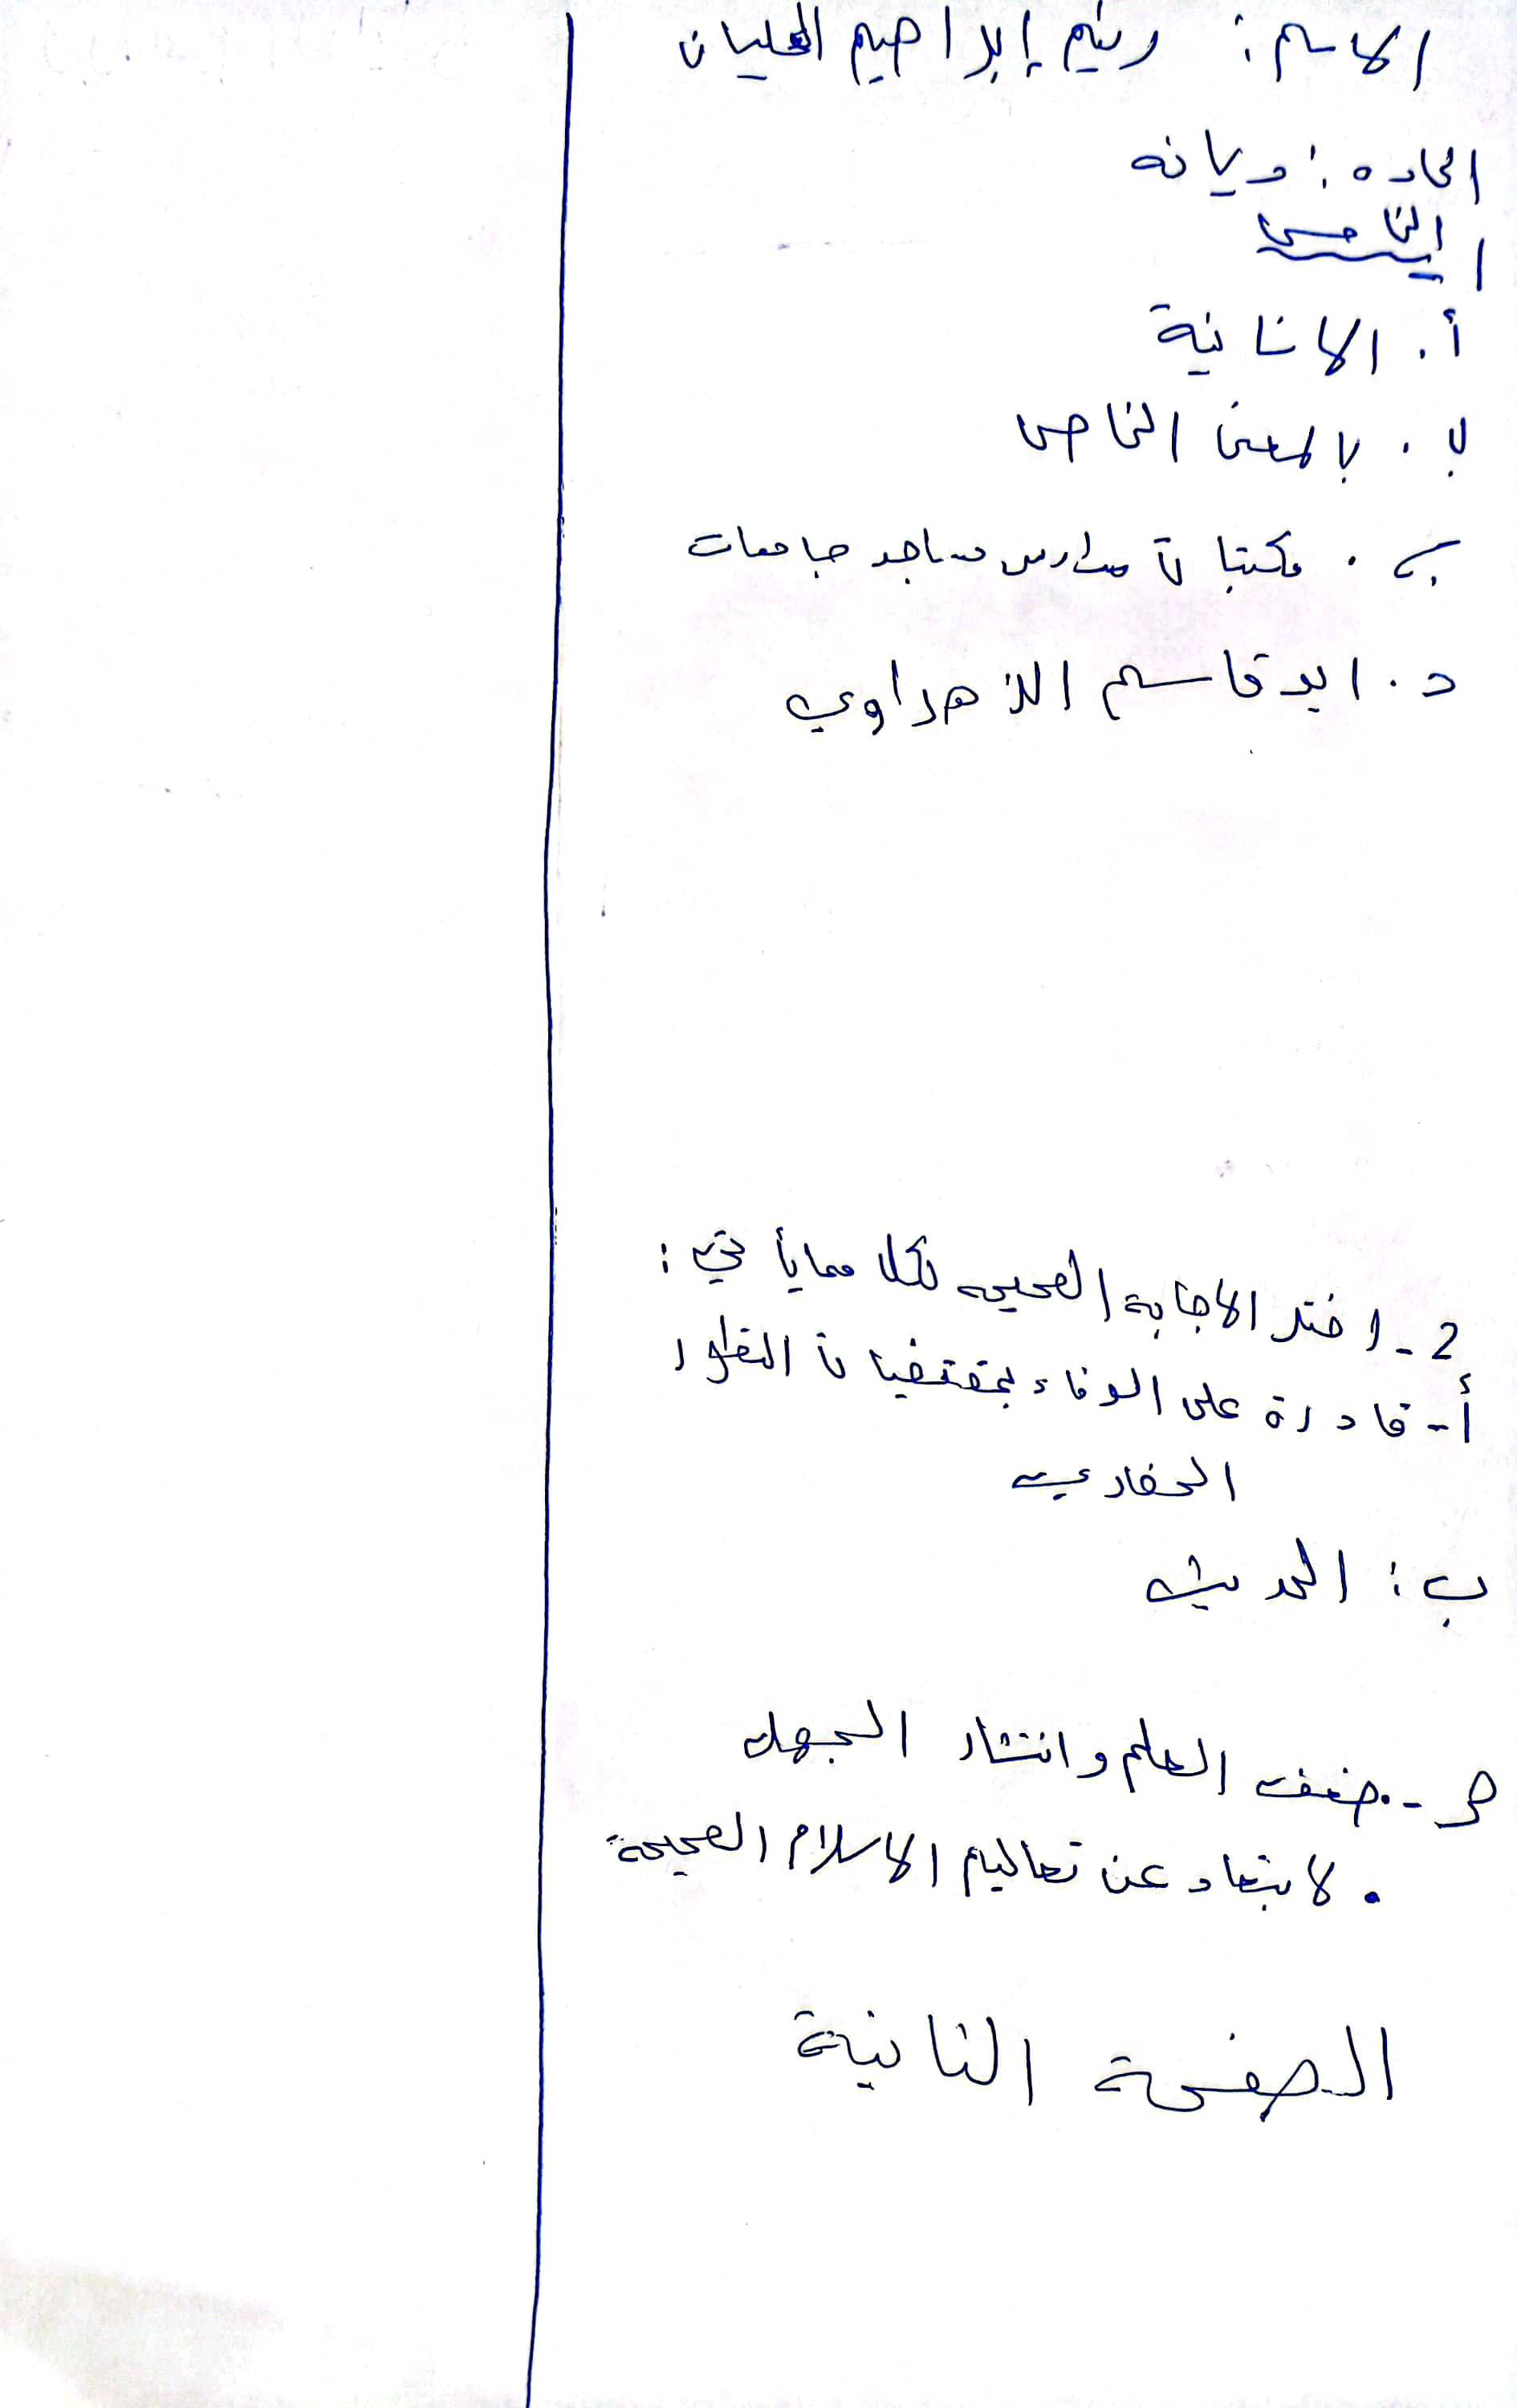 الاسم: رنيم إبراهيم العليان
المادة: ديانه
الخامس
أ. الانسانية
ب. بالمعنى الخاص
ج. مكتباة مدارس مساجد جامعات
د. ابو قاسم الزهراوي
2 - اختر الاجابة الصحيحه لكلا ممايأتي:
أ- قادرة على الوفاء بمقتضياة التطور
الحضاري
ب: الحديث
ج - . ضعف العلم وانتشار الجهل
. لابتعاد عن تعاليم الاسلام الصحيحة
الصفحة الثانية